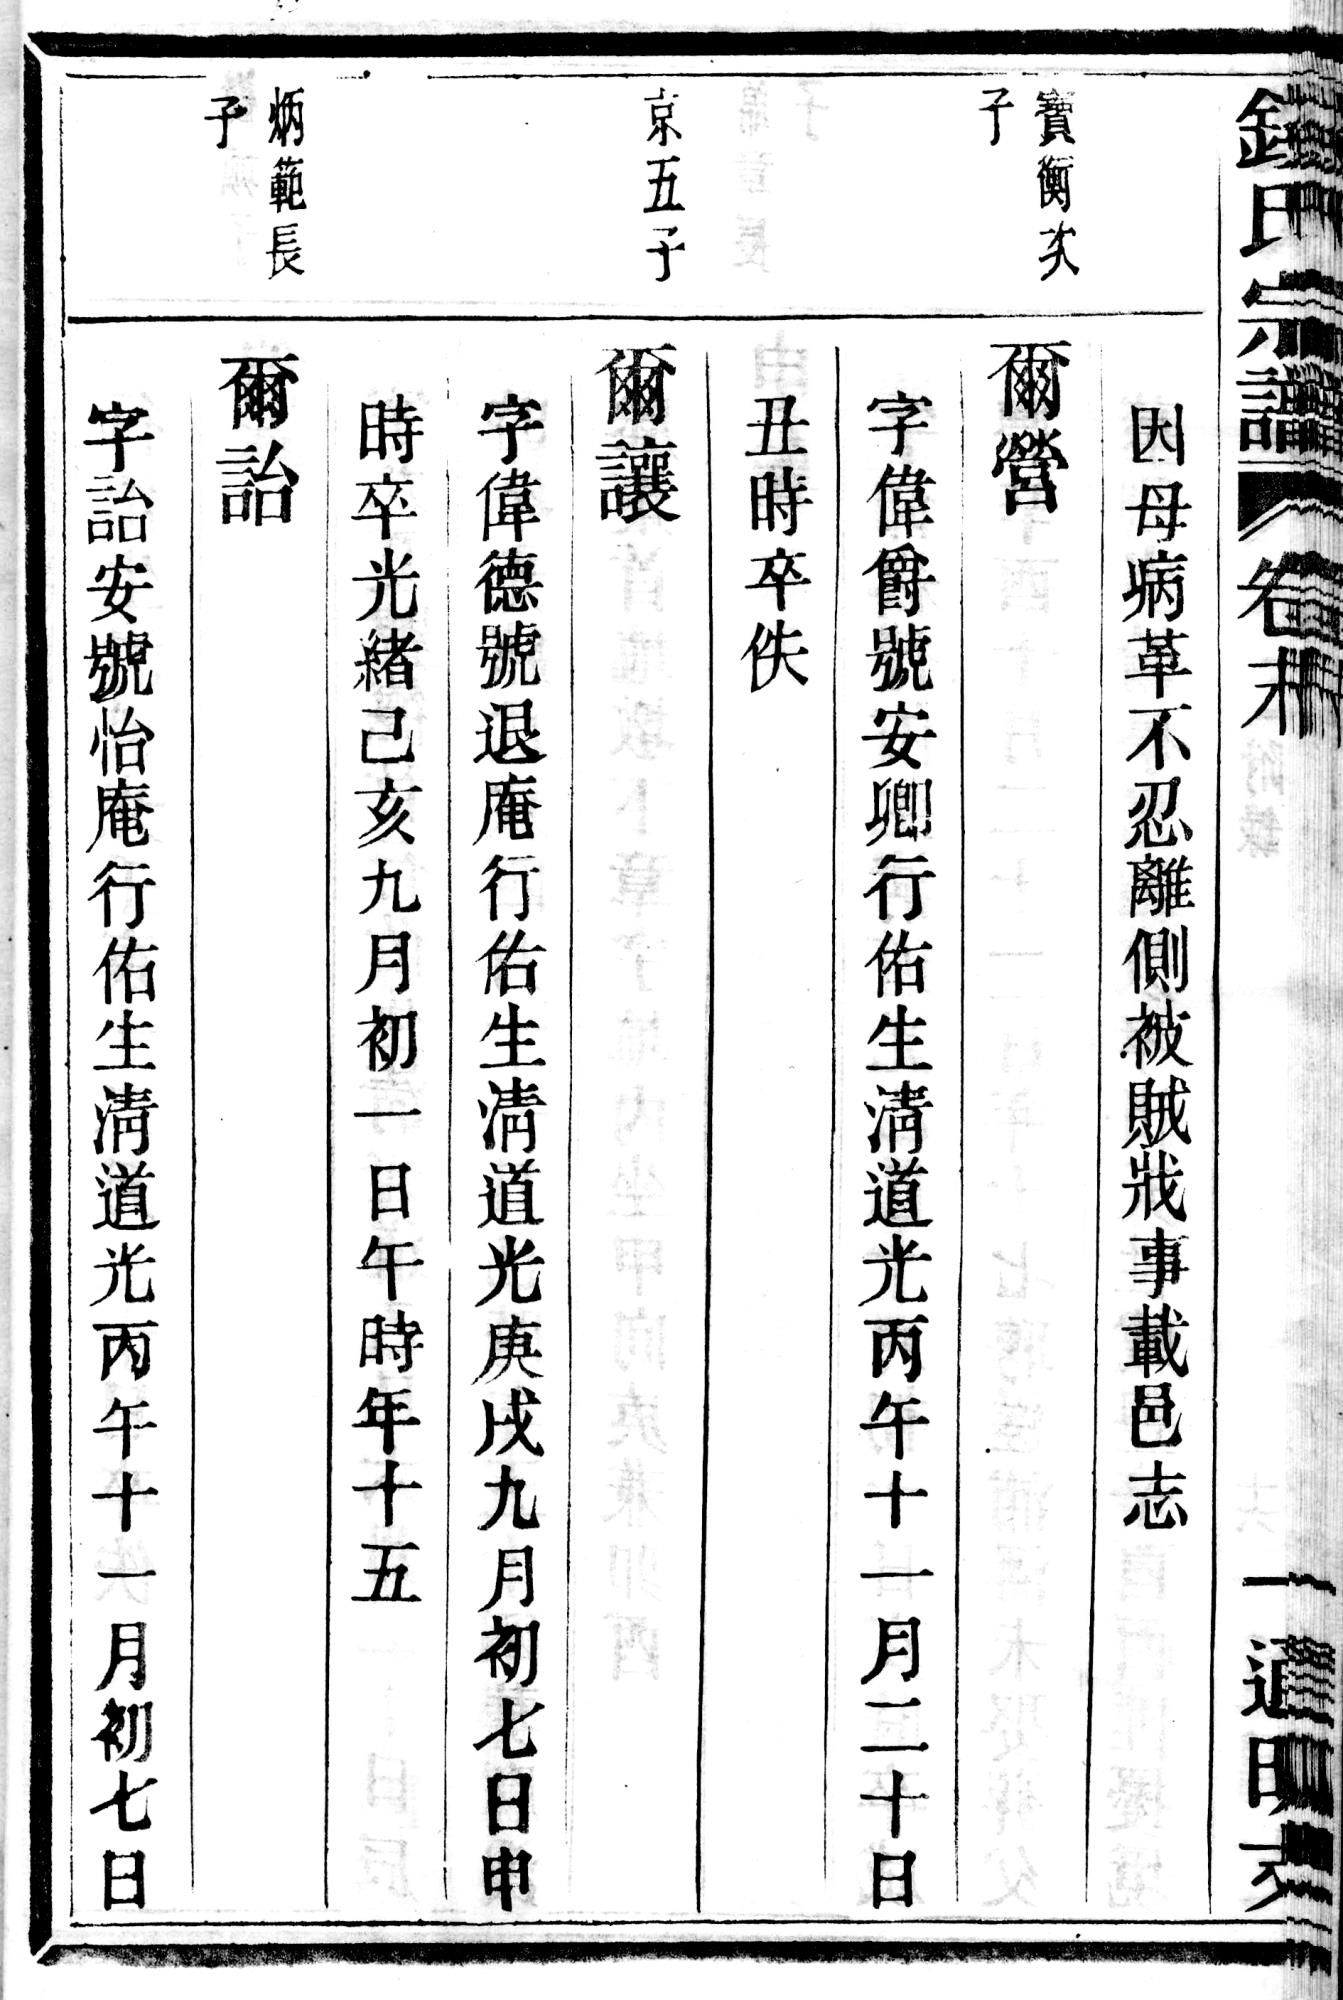 因母病革不忍離側被賊戕事載邑志
寶衡次
子
爾營
字偉爵號安卿行佑生淸道光丙午十一月二十日
丑時卒佚
京五子
爾讓
字偉德號退庵行佑生淸道光庚戌九月初七日申
時卒光緒己亥九月初一日午時年十五
炳範長
子
爾詒
字詒安號怡庵行佑生淸道光丙午十一月初七日
氏宗譜
卷末
一